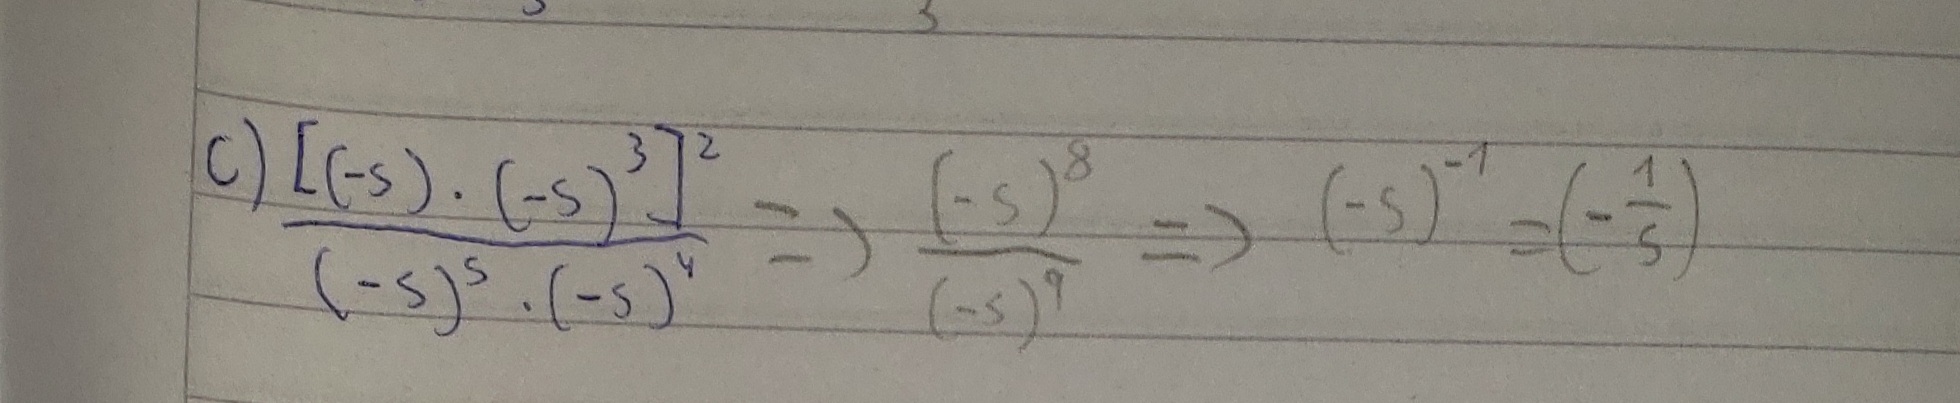 C) [(-5) · (-5)³]² / (-5)⁵ · (-5)⁴ => (-5)⁸ / (-5)⁹ => (-5)⁻¹ = (-1/5)